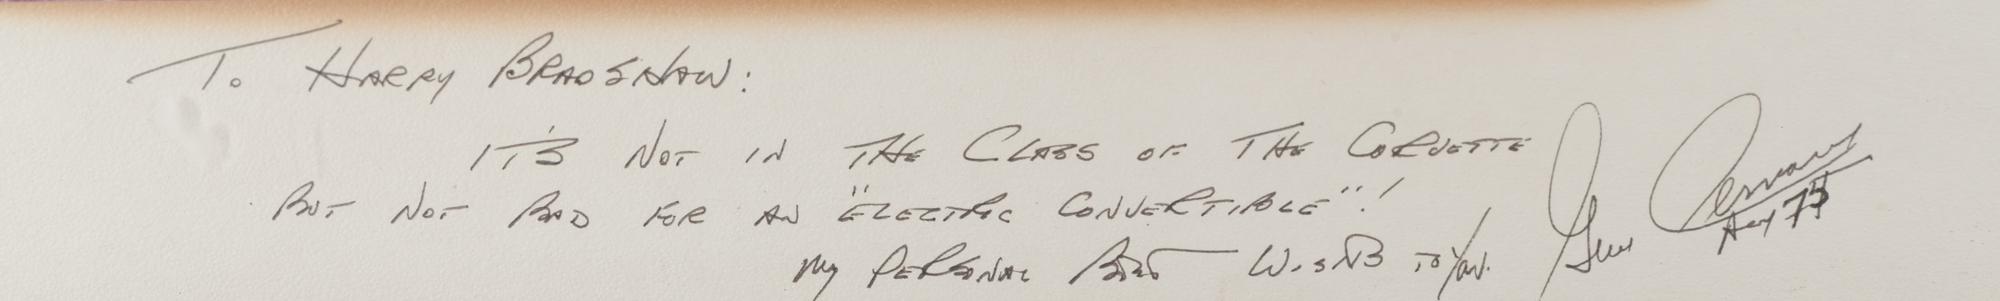 To HARRY BRADSHAW:
IT'S NOT IN THE CLASS OF THE CORVETTE
BUT NOT BAD FOR AN "ELECTRIC CONVERTIBLE"!
My PERSONAL BEST WISHES TO YOU.
Gene Cernan